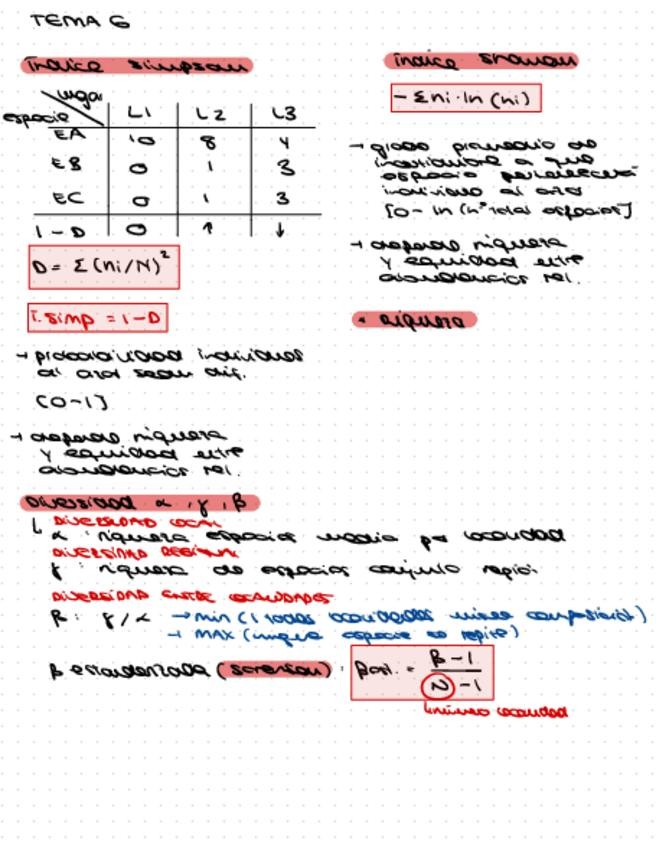 TEMA 6
índice simpson
lugar
especie L1 L2 L3
EA 10 8 4
EB 0 1 3
EC 0 1 3
1-D 0 ↑ ↓
D = Σ(ni/N)²
I. simp = 1-D
→ probabilidad individuos
al azar sean dif.
[0-1]
→ depende riqueza
y equidad entre
abundancias rel.
índice shannon
- Σni·ln(ni)
→ grado promedio de
incertidumbre a que
especie pertenecerá
individuo al azar
[0 - ln(nº total especies]
→ depende riqueza
y equidad entre
abundancias rel.
• riqueza
Diversidad α, γ, β
DIVERSIDAD LOCAL
α: riqueza especies media por localidad
DIVERSIDAD REGIONAL
γ: riqueza de especies conjunto región
DIVERSIDAD ENTRE LOCALIDADES
β: γ/α → min (1 todas localidades misma composición)
→ MAX (ninguna especie se repite)
β estandarizada (sorensen): βest. = β-1 / N-1
número localidad